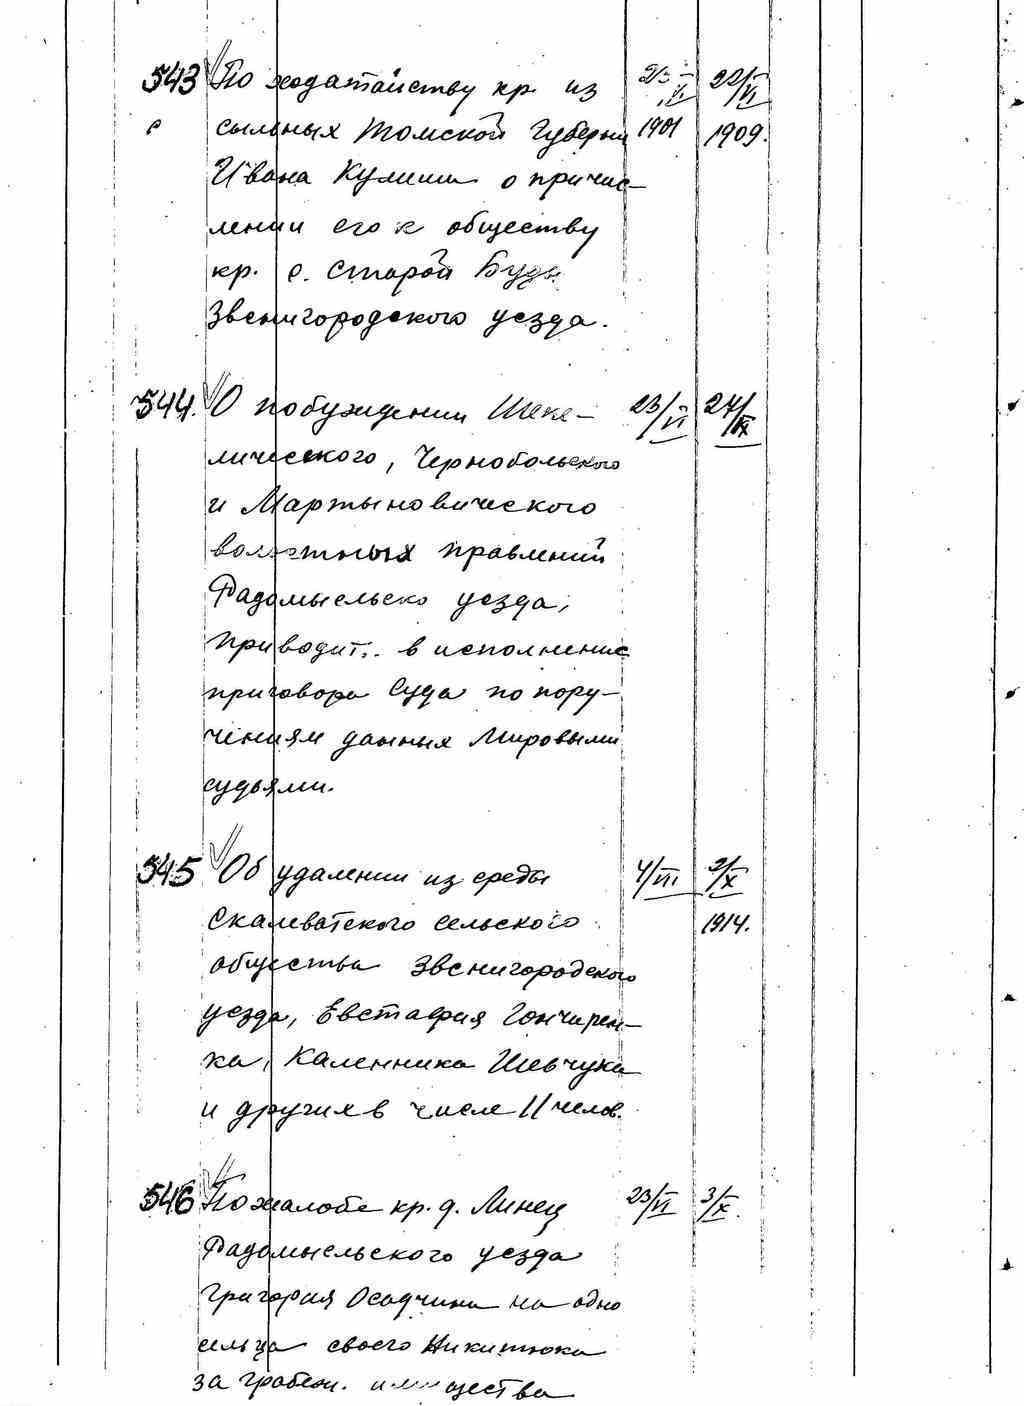 543 По ходатайству кр. из 23/VI 22/VI
с сыльных Томской Губерни 1901 1909.
Ивана Кулиша о причис-
лении его к обществу
кр. с. Старой Буды
Звенигородского уезда.
544. О побуждении Шепе- 23/VI 27/IX
лического, Чернобольского
и Мартыновического
волостных правлений
Радомысльско уезда,
приводит. в исполнение
приговора Суда по пору-
чениям данных Мировыми
судьями.
545 Об удалении из среды 4/VII 2/X
Скалеватского сельского 1914.
общества Звенигородского
уезда, Евстафия Гончарен-
ка, Каленника Шевчука
и других в числе 11 челов.
546 По жалобе кр. д. Линец 23/VI 3/X.
Радомысльского уезда
Григория Осадчина на одно
сельца своего Никитюка
за грабеж. имущества